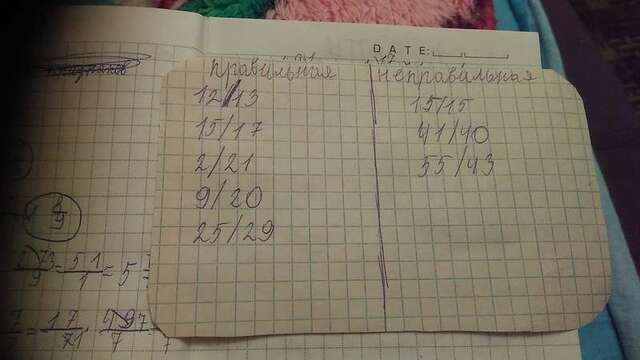 DATE:
правильная неправильная
12/13 15/15
15/17 41/40
2/21 55/43
9/20
25/29
8/9
9 = 51/1 = 5
7 = 17/71 · 497/7 =